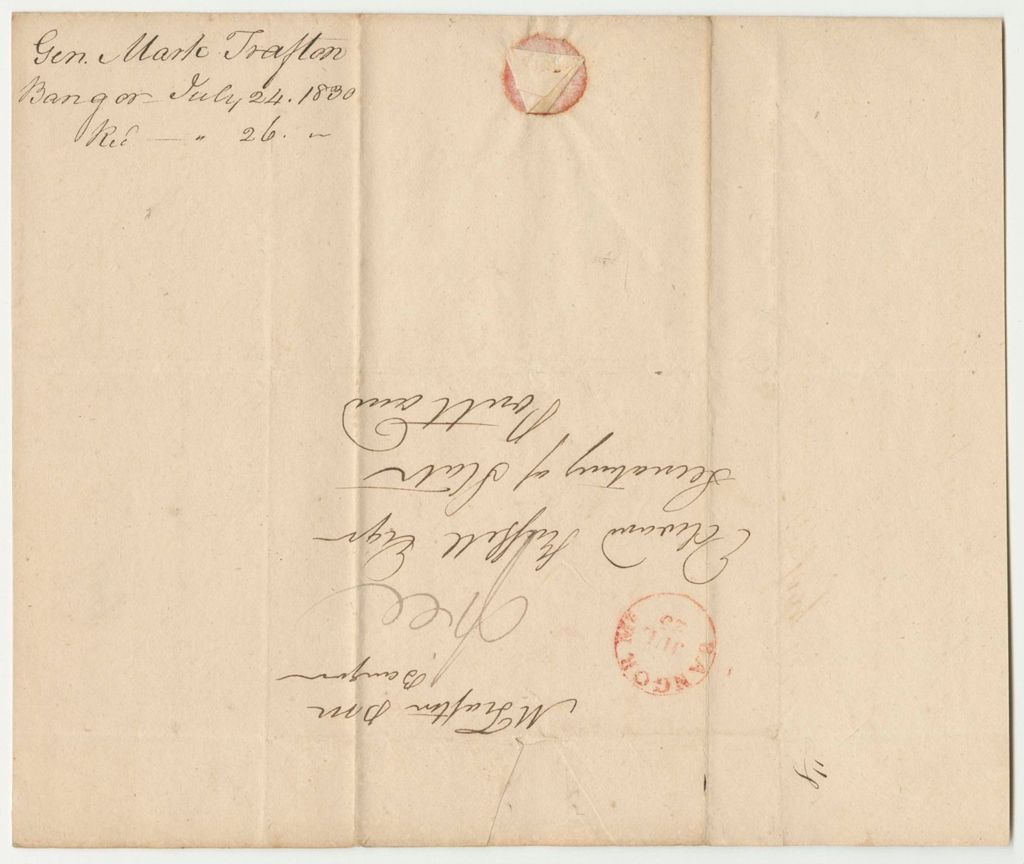 Gen. Mark Trafton
Bangor - July 24. 1830
Recd — " 26. "
M Trafton P M
Bangor
Free
BANGOR Me
JUL
25
Edward Russell Esqr
Secretary of State
Portland